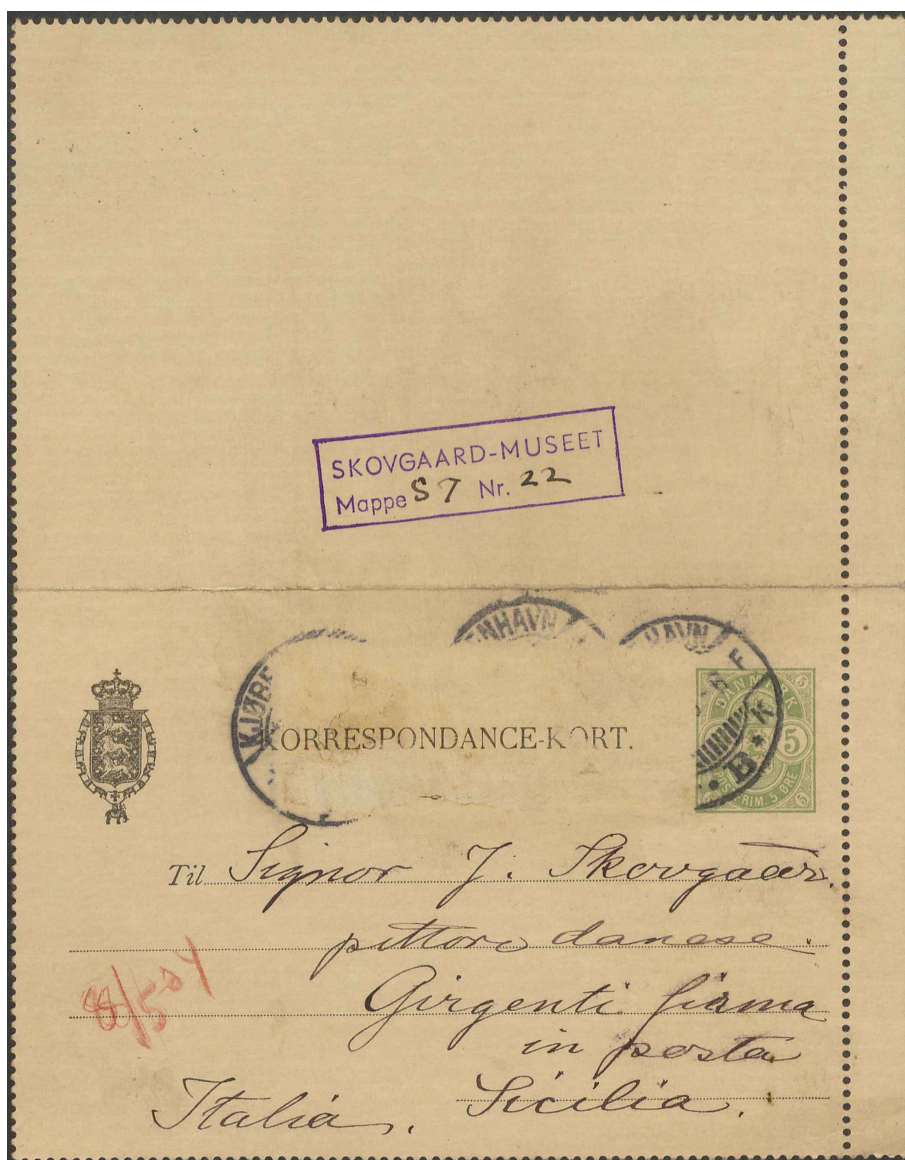 SKOVGAARD-MUSEET
Mappe ST Nr. 22
KORRESPONDANCE-KORT.
DANMARK
5 5
POSTFRIM. 5 ØRE
B K
Til Signor J. Skovgaar.
pittore danese.
Girgenti firma
in posta
Sicilia.
Italia.